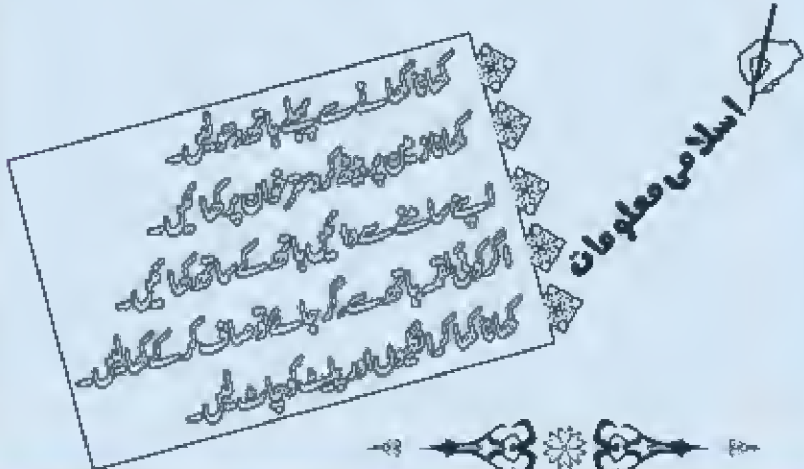 اسلامی معلومات
کھانا کھانے سے پہلے ہاتھ دھو لیں۔
کھانا زمین پر بیٹھ کر دسترخوان پر کھائیں۔
اپنے سامنے سے دائیں ہاتھ کے ساتھ کھائیں۔
اگر کوئی لقمہ ہاتھ سے گر جائے تو صاف کر کے کھا لیں۔
کھانا کھا کر انگلیوں اور پلیٹ کو چاٹ لیں۔